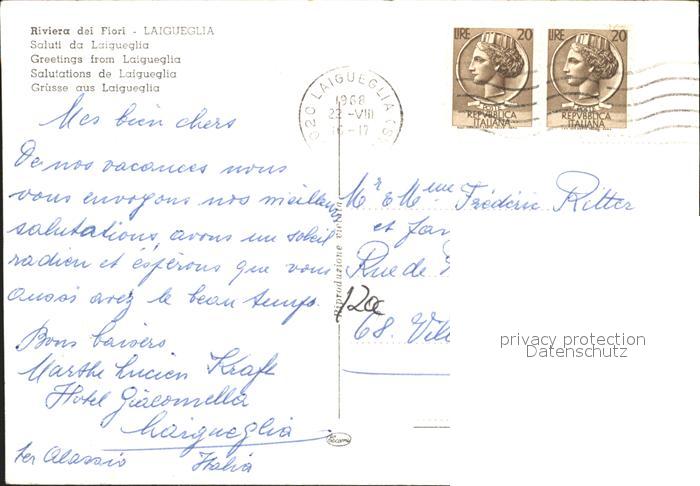 Riviera dei Fiori - LAIGUEGLIA
Saluti da Laigueglia
Greetings from Laigueglia
Salutations de Laigueglia
Grüsse aus Laigueglia
LIRE 20
POSTE
REPVBBLICA
ITALIANA
LIRE 20
POSTE
REPVBBLICA
ITALIANA
020 LAIGUEGLIA (S
1968
22-VIII
16-17
Mes bien chers
De nos vacances nous
vous envoyons nos meilleures
salutations, avons un soleil
radieu et éspérons que vous
aussi avez le beau temps.
Bons baisers
Marthe Lucien Kraft
Hotel Giacomella
Laigueglia
per Alassio Italia
Riproduzione vietata
Mr & Mme Frédéric Ritter
et
Rue de
68.
120c
privacy protection
Datenschutz